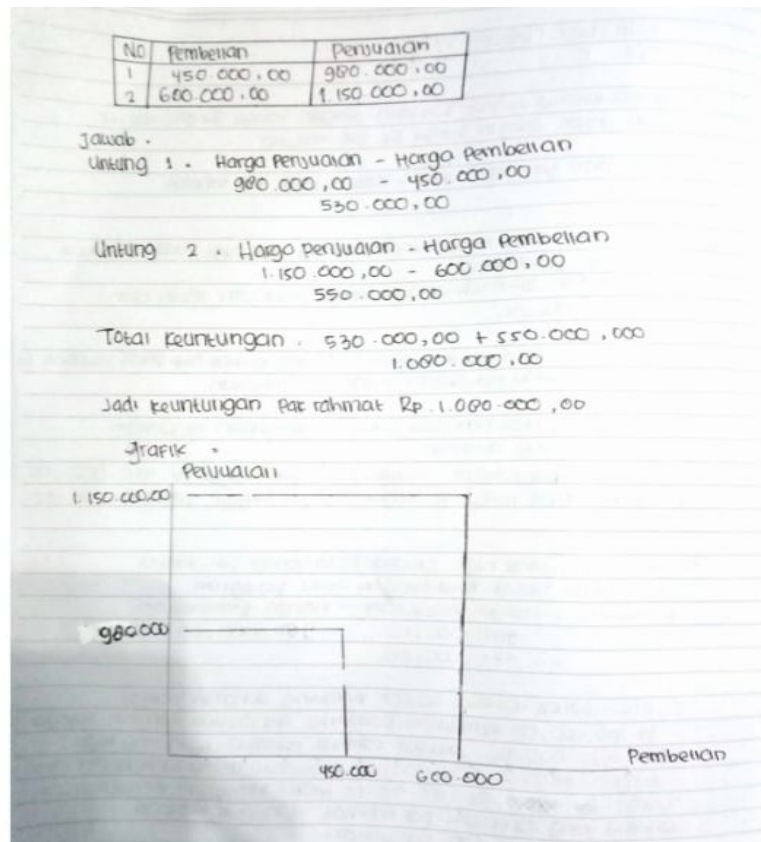 No Pembelian Penjualan
1 450.000,00 980.000,00
2 600.000,00 1.150.000,00
Jawab.
Untung 1. Harga Penjualan - Harga Pembelian
980.000,00 - 450.000,00
530.000,00
Untung 2. Harga penjualan - Harga Pembelian
1.150.000,00 - 600.000,00
550.000,00
Total keuntungan. 530.000,00 + 550.000,000
1.080.000,00
Jadi keuntungan Pak rahmat Rp.1.080.000,00
grafik.
Penjualan
1.150.000,00
980.000
450.000 600.000
Pembelian